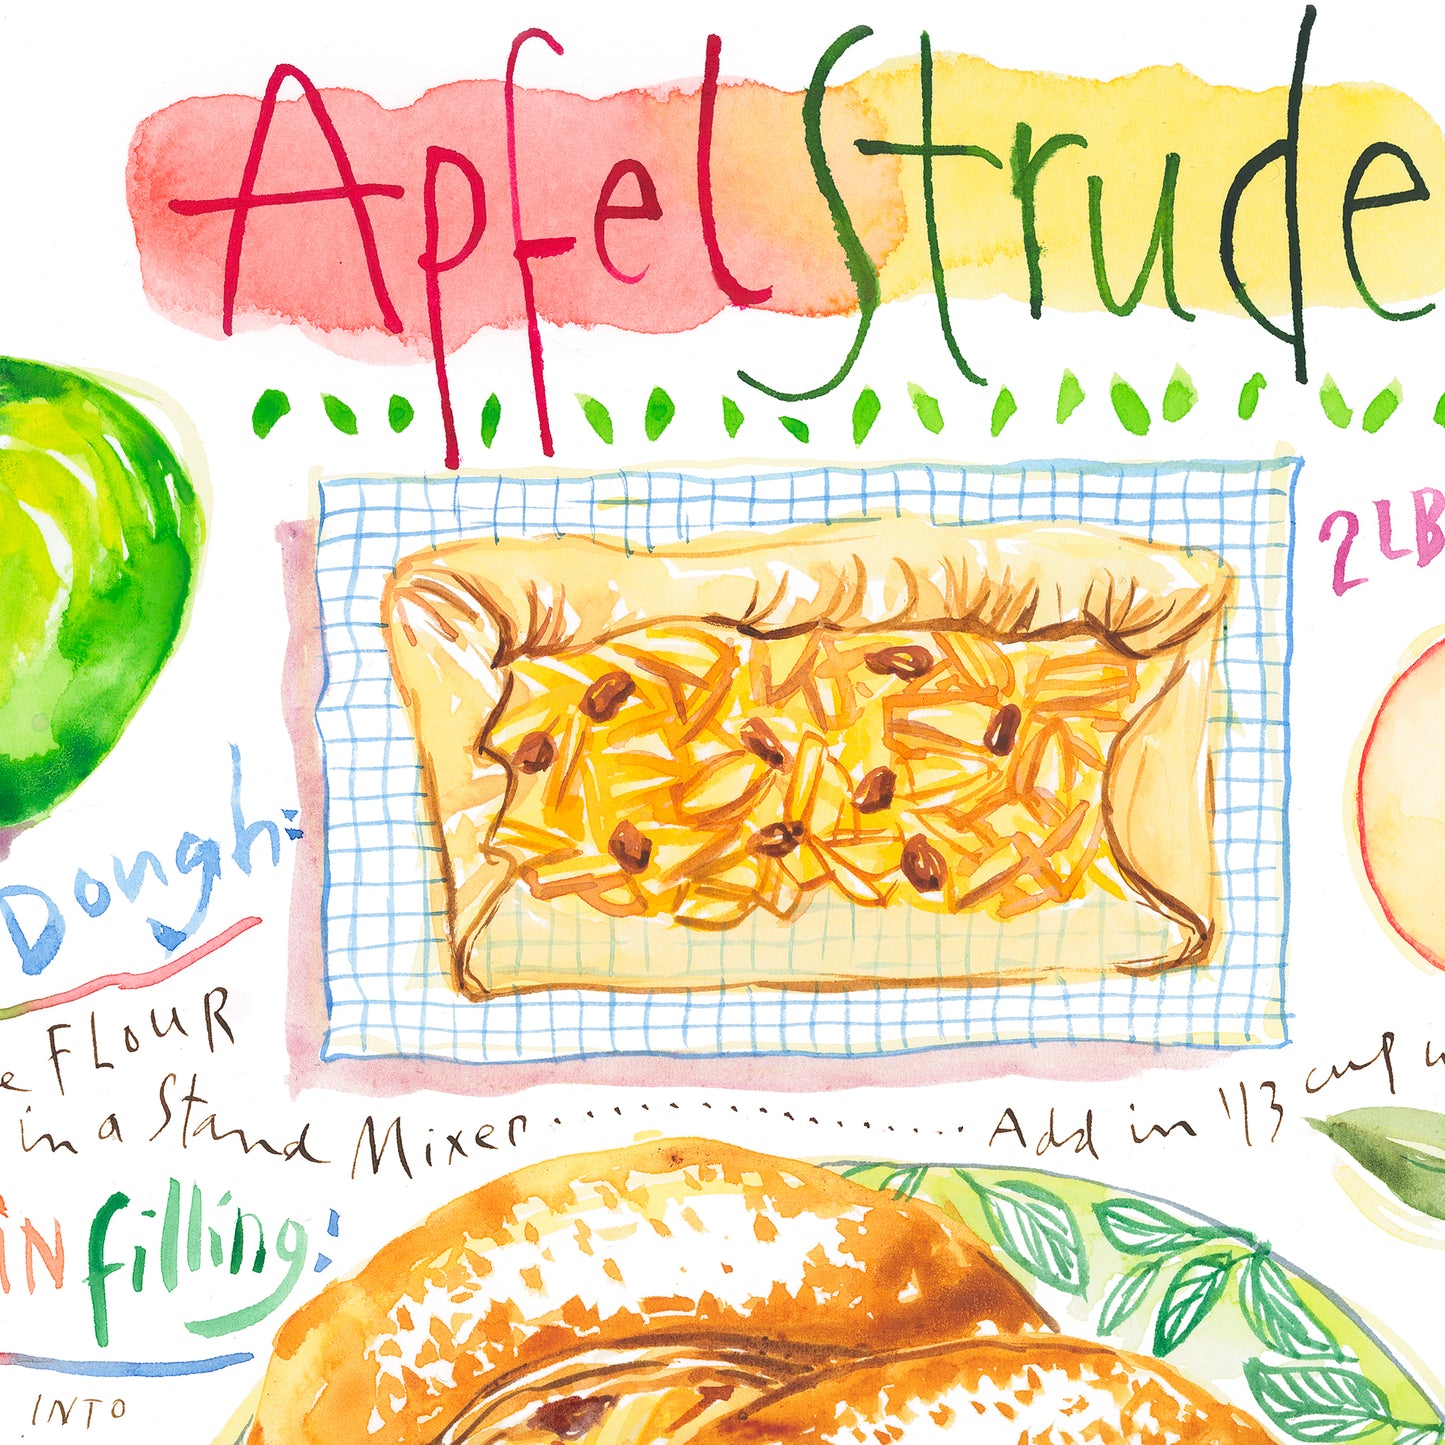 Apfel Strude
2 LB
Dough:
e FLOUR
in a Stand Mixer ............ Add in 1/3 cup w
iN filling:
INTO